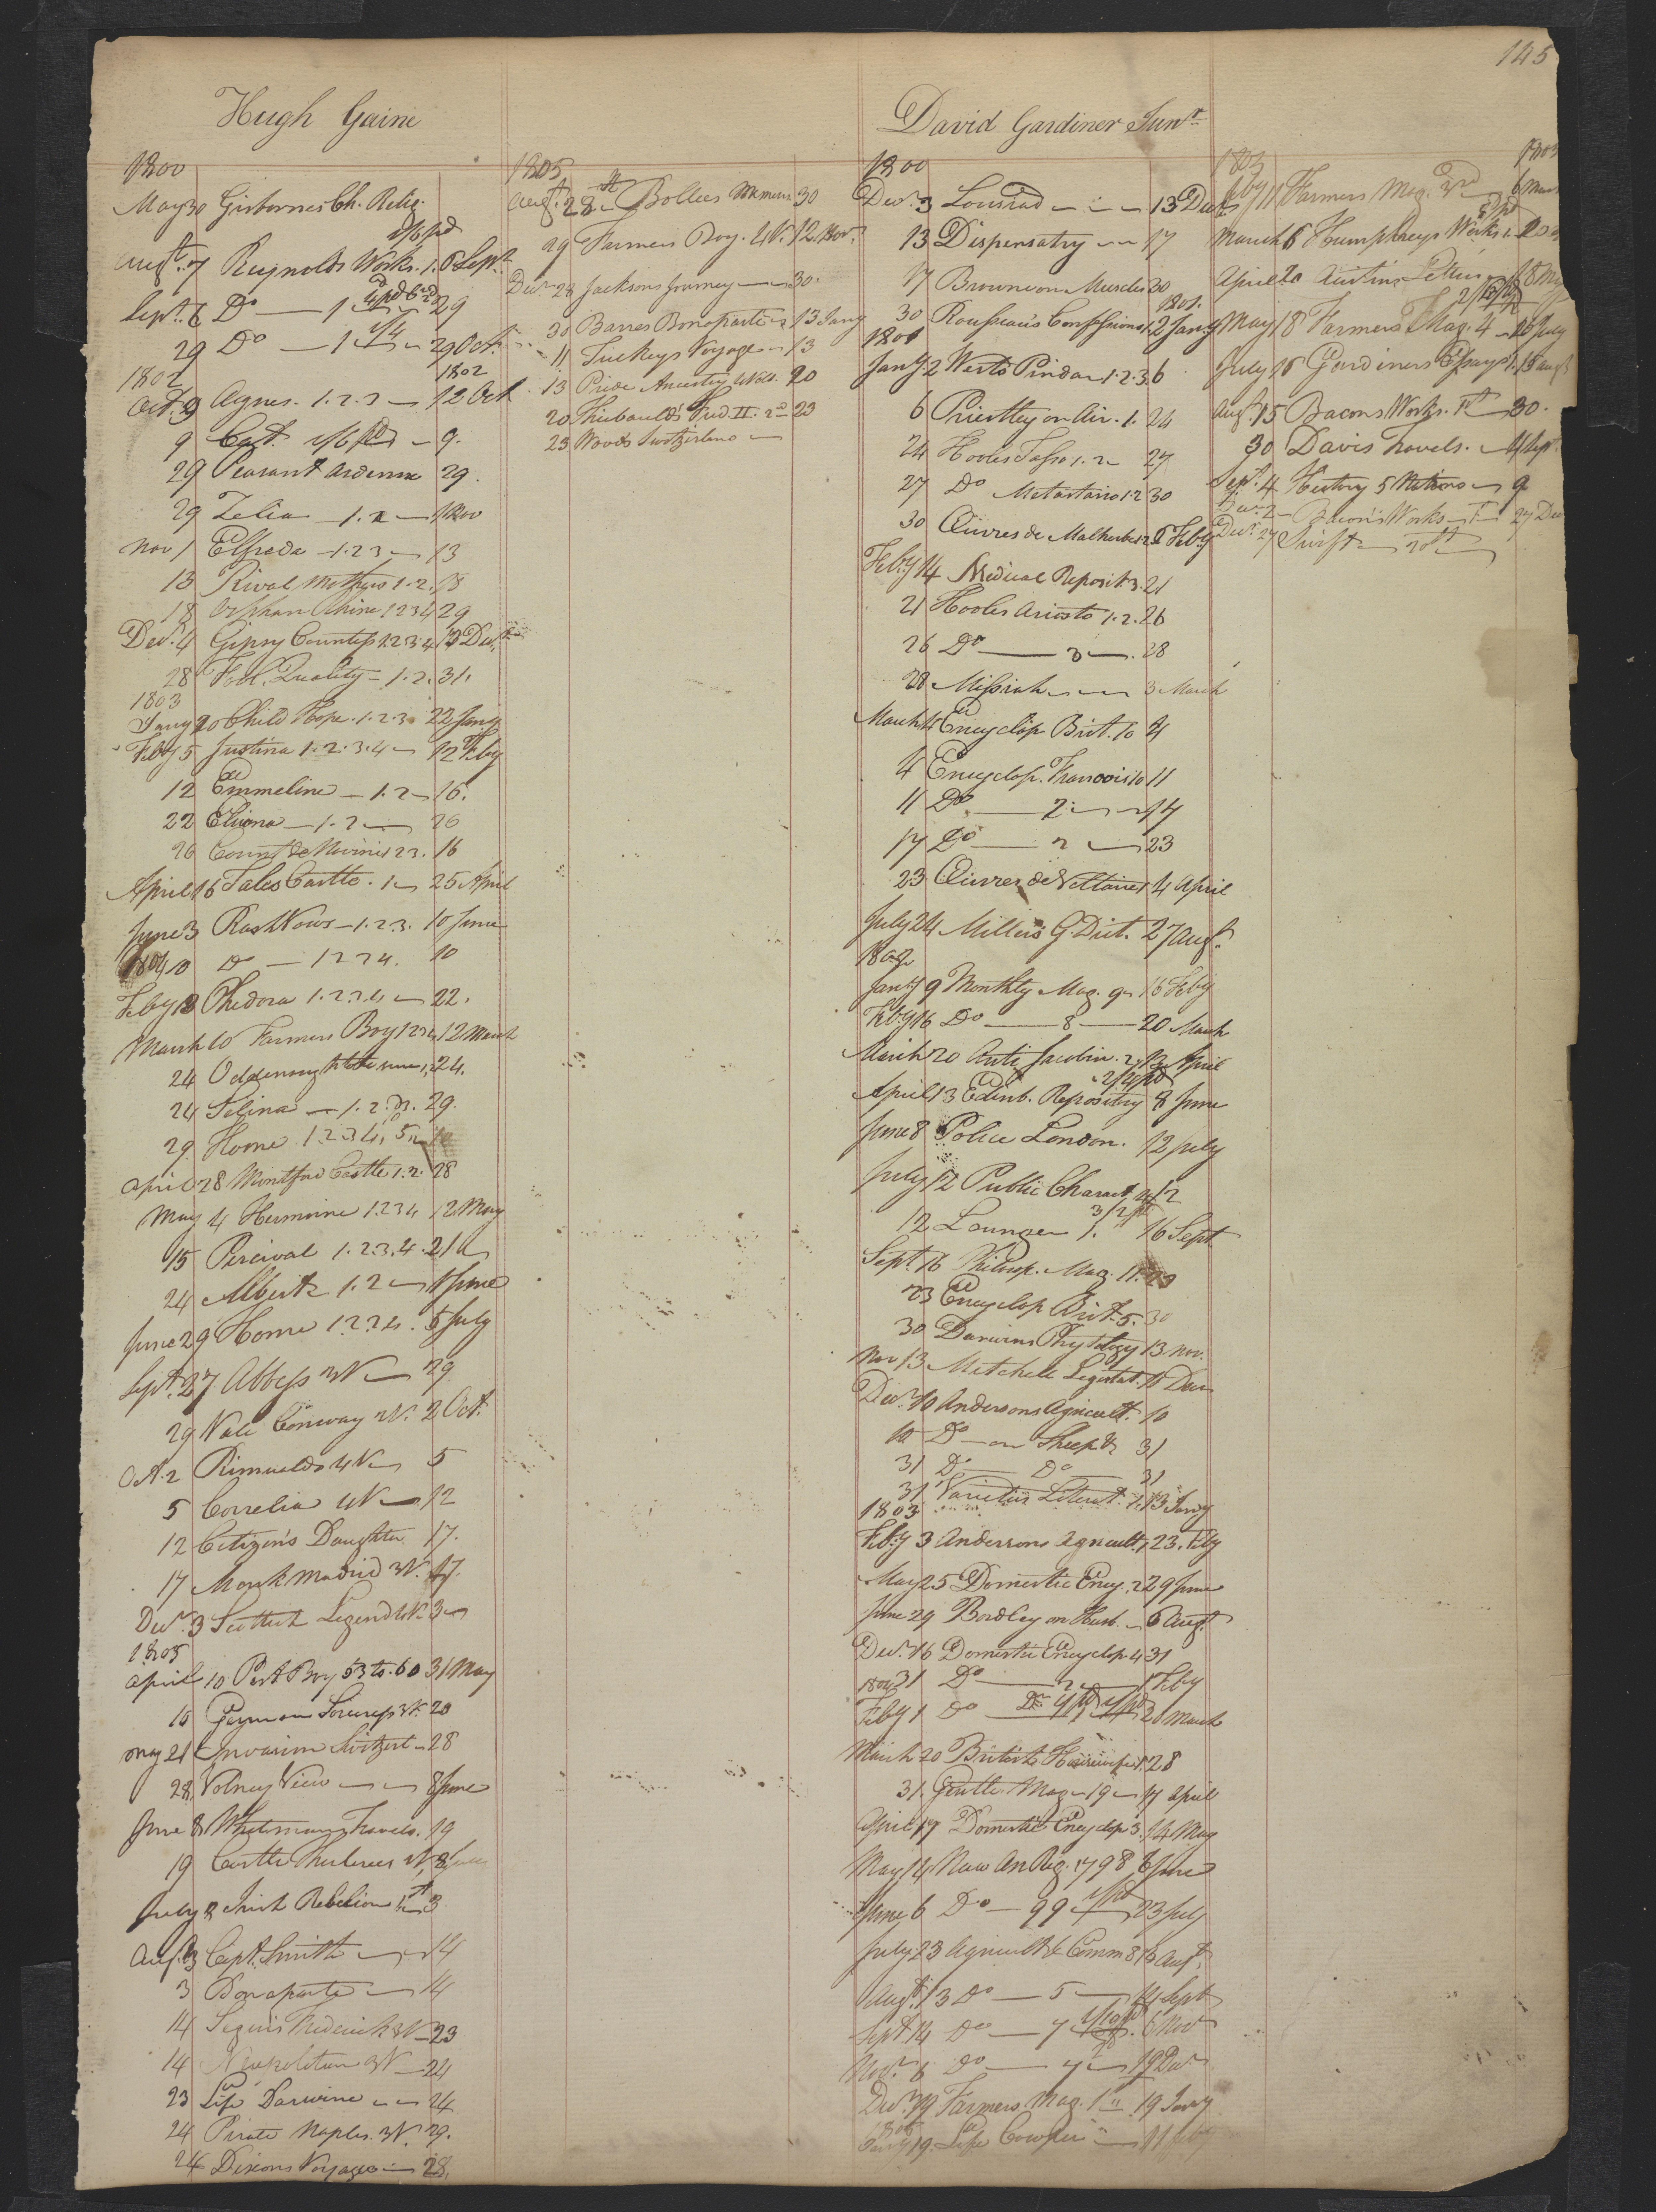 145
Hugh Gaine
1800
May 30 Gisbornes Ch. Relig.
1/6 pd
Augt. 7 Reynolds Works. 1. 6 Sept.
Sept. 6 Do — 1 29
29 Do — 1 29 Oct.
1802 1802
Oct. 9 Agnes. 1.2.3 — 12 Oct
9 1/6 pd — 9.
29 Peasant Ardenne 29.
29 Zelia — 1.2 — 1 Nov
Nov 1 Elfreda — 1.2.3 — 13
13 Rival Mothers 1.2. 18
18 Orphan Rhine 1 2 3 4 29
Decr. 4 Gipsy Countess 1.2.3.4.
28 Fool. Quality — 1.2. 31.
1803
Jany 20 Child Hope. 1.2.3 22 Jany
Feby 5 Justina 1.2.3.4 — 12 Feby
12 Emmeline — 1.2 — 16.
22 — 1.2 — 26
26 Count de 1 2 3. 16
April 16 Tales Castle. 1 — 25 April
June 3 Rash Vows — 1.2.3. 10 June
1804 10 Do — 1 2 3 4. 10
Feby 13 Phedora 1.2.3.4 — 22.
March 10 Farmers Boy 1 2 3 4 12 March
24 24.
24 Selina — 1.2.3. 29.
29 Home 1 2 3 4, 5
April 28 Montford Castle 1.2. 28
May 4 Hermione 1 2 3 4 12 May
15 Percival 1.2.3.4. 21
24 Albert 1.2 — 1 June
June 29 Home 1.2.3.4. 5 July
Sept. 27 Abbess 3 V — 29
29 Vale Conway 2 V. 2 Oct.
Oct. 2 Rimualdo 4 V — 5
5 Correlia 4 V — 12
12 Citizen's Daughter 17.
17 Monk Madrid 3 V. 17.
Decr. 3 Scottish Legend 4 V. 3
1805
April 10 Post Boy 53 to. 60 31 May
10 German Sorceress 3 V. 20
May 21 Invasion Switzerl — 28
28 Volney View — 8 June
June 8 Whitemans Travels. 19
19 Castle 2 V
July 8 Irish Rebelion 1st 3
Augt. 3 Capt. Smith — 14
3 Bonaparte — 14
14 Segurs Frederick 3 V — 23
14 Neapolitan 3 V — 24
23 Life Darwine — 24
24 Pirate Naples. 3 V. 29.
24 Dixons Voyages — 28.
1805
Augt. 28th Bollers Memoirs 30
29 Farmers Boy. 4 V. 12 Novr.
Decr 28 Jacksons Journey — 30.
30 Barres Bonaparte 13 Jany
11 Tuckeys Voyage — 13
13 Pride Ancestry 4 Vols. 20
20 Thiebaults Fred. II. 2d 23
23 Woods Switzerland —
David Gardiner Junr
1800
Decr. 3 Lousiad — 13 Decr
13 Dispensatry — 17
17 Browne on Muscles 20
1801.
30 Rousseau's Confessions 1. 2 Jany
1801
Jany 2 Works Pindar 1.2.3 6
6 Priestley on Air. 1. 24
24 Hooles Tasso 1.2 — 27
27 Do Metastasio 1.2 30
30 Œuvres de Malherbe 6 Feby
Feby 14 Medical Reposit 3. 21
21 Hooles Ariosto 1.2. 26
26 Do — 3 — 28
28 Missiah — 3 March
March 4 Encyclop Brit. 10 4
4 Encyclop. Francois 10 11
11 Do — 2 — 17
17 Do — 2 — 23
23 Œuvres de Voltaire 1 4 April
July 24 Millers G. Dict. 27 Augt.
1802
Jany 9 Monthly Mag. 9 — 16 Feby
Feby 16 Do — 8 — 20 March
March 20 Anti Jacobin. 2, 13 April
2/4 pd
April 13 Edinb. Repository 8 June
June 8 Police London. 12 July
July 12 Public Charact. 4 12
12 Lounger 1. 16 Sept.
Sept. 16 Philosp. Mag. 11. 23
23 Encyclop Brit. 5. 30
30 Darwins Phytology 13 Nov.
Nov 13 Mitchell Legislat. 10 Decr
Decr. 10 Andersons Agricult. 10
10 Do — on Sheep & 31
31 Do — Do — 31
31 Varieties Literat. 1. 13 Jany
1803
Feby 3 Andersons Agricult, 23. Feby
May 25 Domestic Ency. 2 29 June
June 29 Bordley on Husb. — 6 Augt.
Decr. 16 Domestic Encyclop 4 31
1804 31 Do — 2 — 1 Feby
Feby 1 Do — 20 March
March 20 British 1. 28
31. Gentle. Mag — 19 — 17 April
April 17 Domestic Encyclop 3. 14 May
May 14 New An Reg. 1798 6 June
June 6 Do — 99 23 July
July 23 Agricult & Comm 8 13 Augt.
Augt. 13 Do — 5 — 14 Sept
Sept 14 Do — 7 6 Nov
Novr. 6 Do — 19 Decr
Decr. 19 Farmers Mag. 1 19 Jany
1805
Jany 19 Life Cowper —
1805 1805
Feby 11 Farmers Mag. 3d 6 March
March 6 Humphreys Works 1. 20
April 20 Austins Letters 18 May
May 18 Farmers Mag. 4 — 16 July
July 16 Gardiners Essays 1. 15 Augt
Augt 15 Bacons Works. 1st 30.
30 Davis Travels. 4 Sept.
Sept. 4 History 5 Nations — 9
Decr. 2 Bacon's Works — 27 Decr
Decr. 27 Swift —